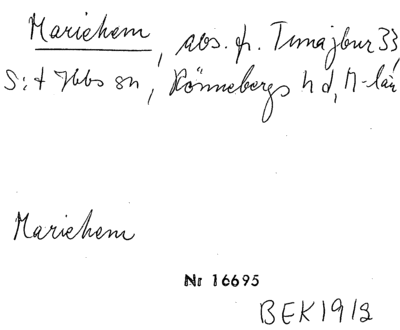 Mariehem, avs. fr. Tuna jbur 33,
S:t Ibbs sn, Rönnebergs hd, M-län
Mariehem
Nr 16695
BEK 1912